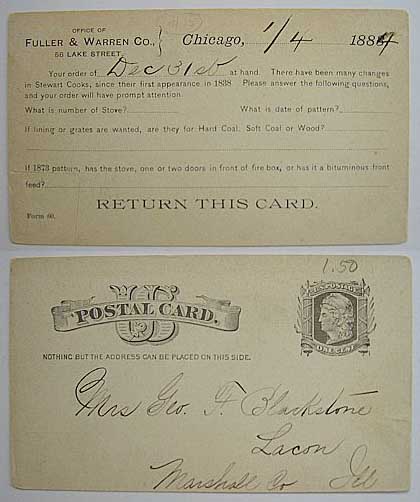 OFFICE OF
FULLER & WARREN CO.,
56 LAKE STREET.
Chicago, 1/4 1884
Your order of Dec 31st at hand. There have been many changes
in Stewart Cooks, since their first appearance in 1838. Please answer the following questions,
and your order will have prompt attention.
What is number of Stove? What is date of pattern?
If lining or grates are wanted, are they for Hard Coal. Soft Coal or Wood?
If 1873 pattern, has the stove, one or two doors in front of fire box, or has it a bituminous front
feed?
RETURN THIS CARD.
Form 60.
1.50
U.S. POSTAGE
US
POSTAL CARD.
ONE CENT
NOTHING BUT THE ADDRESS CAN BE PLACED ON THIS SIDE.
Mrs Geo. F. Blackstone
Lacon
Marshall Co Ill